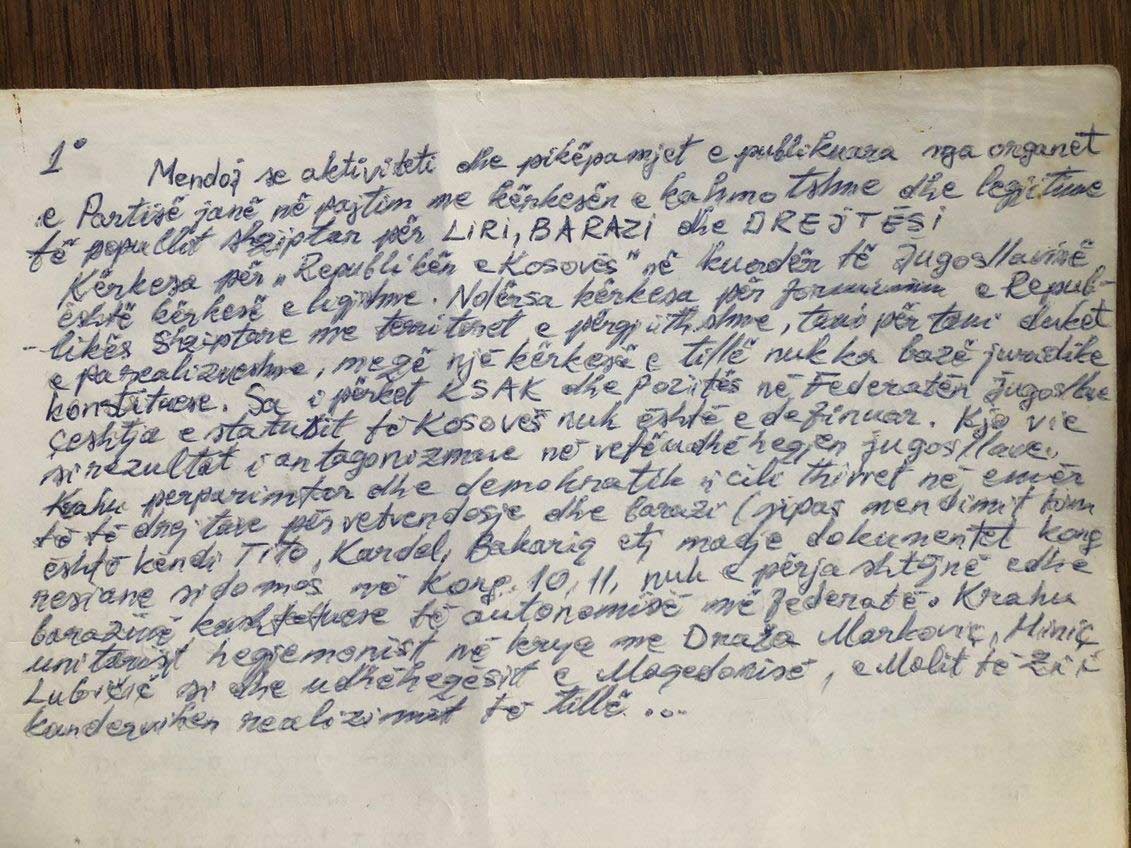 1°
Mendoj se aktiviteti dhe pikëpamjet e publikuara nga organet
e Partisë janë në pajtim me kërkesën e kahmotshme dhe legjitime
të popullit shqiptar për LIRI, BARAZI dhe DREJTËSI
Kërkesa për „Republikën e Kosovës" në kuadër të Jugosllavisë
është kërkesë e ligjshme. Ndërsa kërkesa për e Repub-
likës Shqiptare me territoret e përgjithshme, tani për tani duket
e parealizueshme, megë një kërkesë e tillë nuk ka bazë juridike
konstituese. Sa i përket KSAK dhe Pozitës në Federatën Jugosllave
çeshtja e statusit të Kosovës nuk është e definuar. Kjo vie
si rezultat i antagonizmave në vetë udhëheqjen jugosllave.
Krahu perparimtar dhe demokratik i cili thirret në emër
të të drejtave për vetvendosje dhe barazi (sipas mendimit tim
është këndi Tito, Kardel, Bakariq etj madje dokumentet kong
resiane sidomos në Kong. 10, 11, nuk e përjashtojnë edhe
barazinë kushtetuese të autonomisë në federatë. Krahu
unitarist hegjemonist në krye me Draža Markoviç, Miniç
Lubiçiç si dhe udhëheqësit e Maqedonisë, e Malit të Zi i
kundervihen realizimit të tillë ...